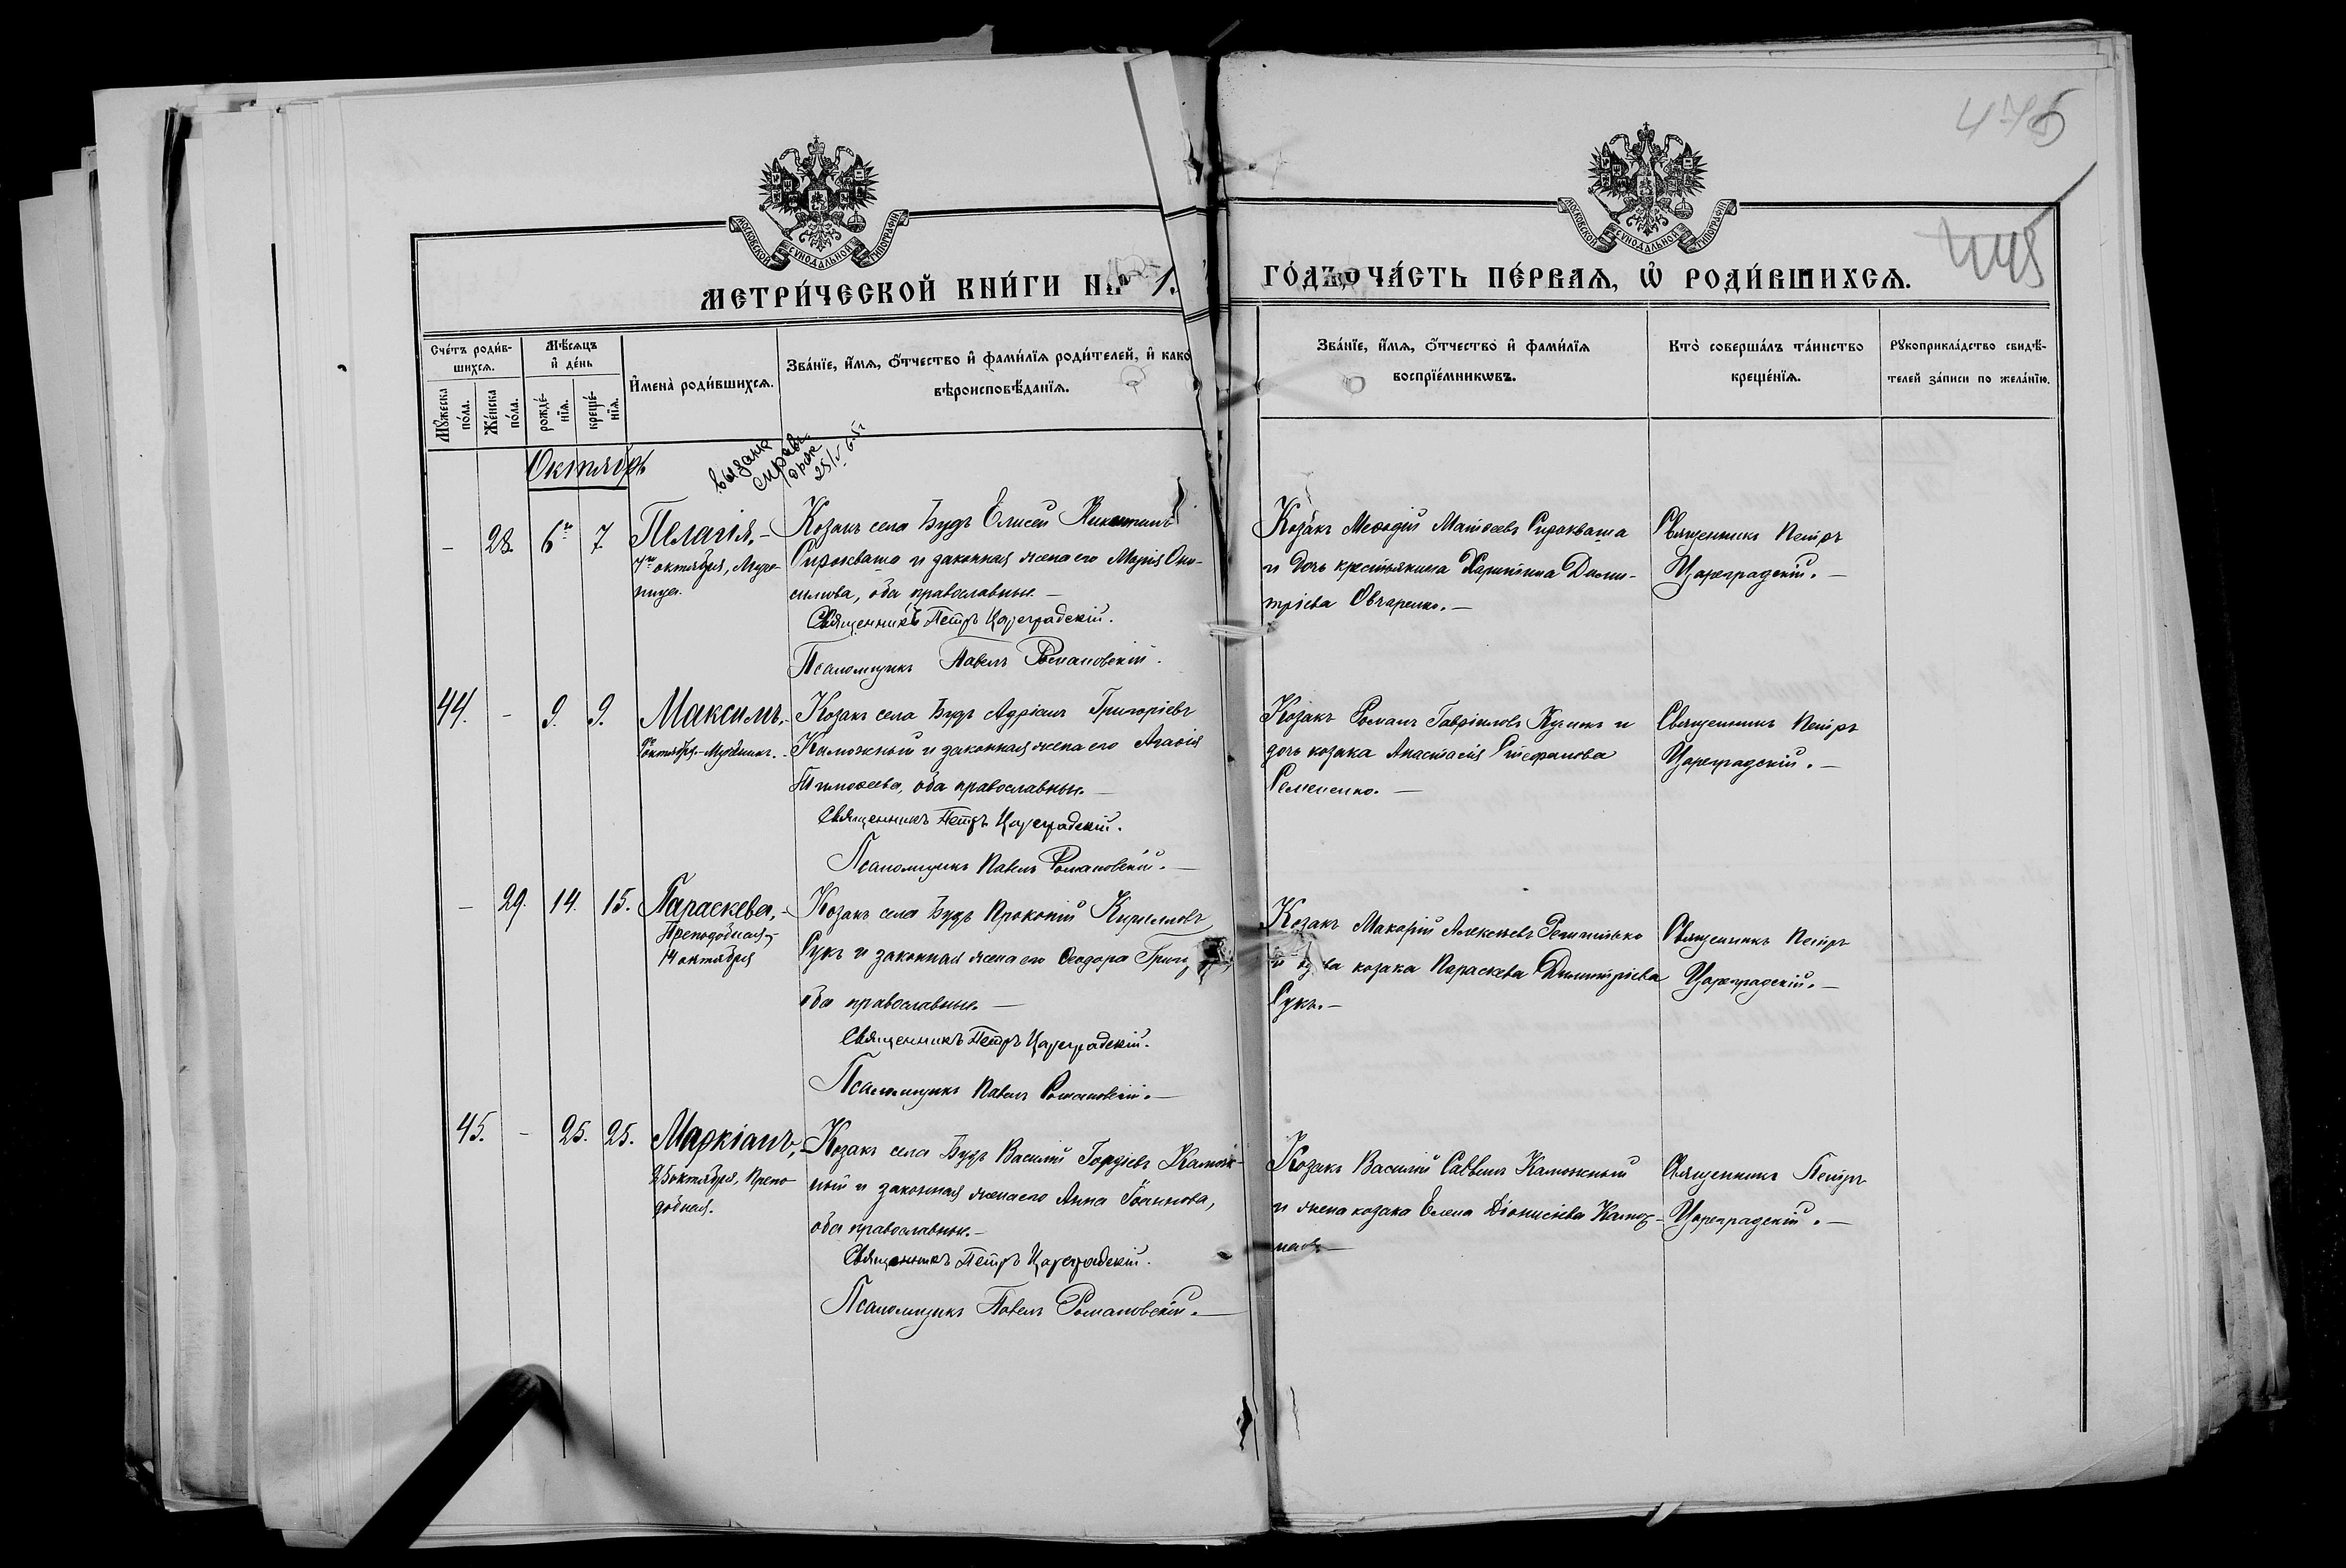 475
445
МОСКОВСКОЙ СУНОДАЛЬНОЙ ТИПОГРАФІИ
МОСКОВСКОЙ СУНОДАЛЬНОЙ ТИПОГРАФІИ
МЕТРИ́ЧЕСКОЙ КНИ́ГИ НА 1
ГО́ДЪ, ЧА́СТЬ ПЕ́РВАѦ, Ѡ҆ РОДИ́ВШИХСѦ.
Сче́тъ роди́в-
шихсѧ.
Мꙋ́жеска по́ла.
Же́нска по́ла.
Мѣ́сѧцъ
и҆ де́нь
рожде́-
нїѧ.
креще́-
нїѧ.
И҆мена̀ роди́вшихсѧ.
Зва́нїе, и҆́мѧ, ѻ҆́тчество и҆ фами́лїѧ роди́телей, и҆ како
вѣроисповѣ́данїѧ.
Зва́нїе, и҆́мѧ, ѻ҆́тчество и҆ фами́лїѧ
воспрїе́мникѡвъ.
Кто̀ соверша́лъ та́инство
креще́нїѧ.
Рꙋкоприкла́дство свидѣ́-
телей за́писи по жела́нїю.
Октябрь
выдана
справ.
25/V
- 28. 6го 7 Пелагія,-
7го октября, Муче-
ница.
Козакъ села Будъ Елисей Никитинъ
Сироквашa и законная жена его Марія Они-
симова, оба православные.-
Священникъ Петръ Цареградскій.
Псаломщикъ Павелъ Романовскій.
Козакъ Меѳодій Матѳеевъ Сироквашa
и дочь крестьянина Харитина Дими-
тріева Овчаренко.-
Священникъ Петръ
Цареградскій.-
44. - 9. 9. Максимъ,-
октября.- Мученикъ.-
Козакъ села Будъ Адріанъ Григоріевъ
Каложный и законная жена его Агаѳія
Тимоѳеева, оба православные.-
Священникъ Петръ Цареградскій.
Псаломщикъ Павелъ Романовскій.-
Козакъ Романъ Гавріиловъ и
дочь козака Анастасія Стефанова
Семененко.-
Священникъ Петръ
Цареградскій.-
- 29. 14. 15. Параскева,-
Преподобная,-
14 октября
Козакъ села Будъ Прокопій Кирилловъ
Сукъ и законная жена его Ѳеодора
оба православные.-
Священникъ Петръ Цареградскій.
Псаломщикъ Павелъ Романовскій.-
Козакъ Макарій Алексѣевъ
и козака Параскева Димитріева
Сукъ.-
Священникъ Петръ
Цареградскій.-
45. - 25. 25. Маркіанъ,-
25 октября, Препо-
добная.
Козакъ села Будъ Василій Гордіевъ Калож-
ный и законная жена его Анна Іоаннова,
оба православные.-
Священникъ Петръ Цареградскій.
Псаломщикъ Павелъ Романовскій.-
Козакъ Василій Саввинъ Каложный
и жена козака Елена Діонисіева Калож-
ная.-
Священникъ Петръ
Цареградскій.-